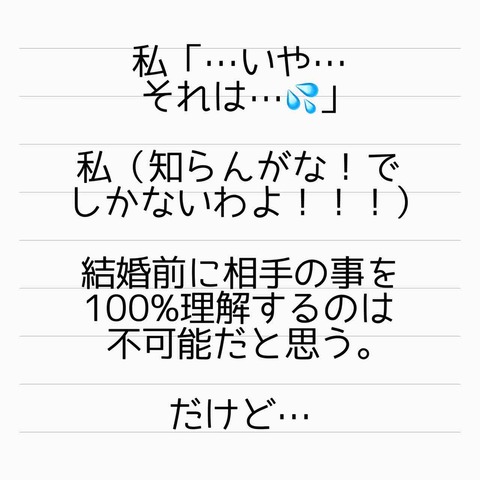 私「…いや…
それは…💦」
私（知らんがな！で
しかないわよ！！！）
結婚前に相手の事を
100%理解するのは
不可能だと思う。
だけど…